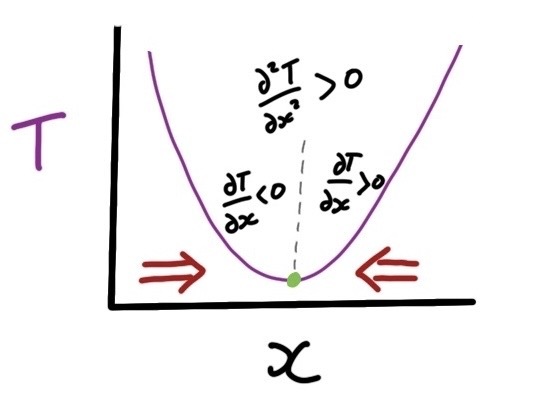 ∂²T/∂x² > 0
T
∂T/∂x < 0
∂T/∂x > 0
x